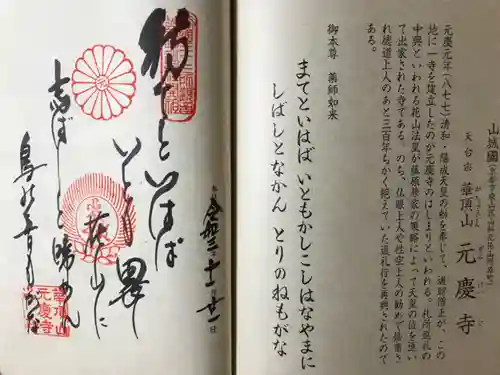 山城國
天台宗 華頂山 元慶寺
かちょうざん がんけいじ
元慶元年(八七七)清和・陽成天皇の勅を奉じて、遍昭僧正が、この
地に一寺を建立したのが元慶寺のはじまりといわれる。札所巡礼の
中興といわれる花山法皇が藤原兼家の策略によって天皇の位を退い
て出家された寺である。のち、仏眼上人や性空上人の勧めで播磨さ
れ徳道上人のあと三百年ちかく絶えていた巡礼行を再興されたので
ある。
御本尊 薬師如来
まてといはば いともかしこしはなやまに
しばしとなかん とりのねもがな
待てといはば
いとも畏し
花山に
志ばしと啼かん
鳥の音もがな
令和三
十一
日
華頂山
元慶寺